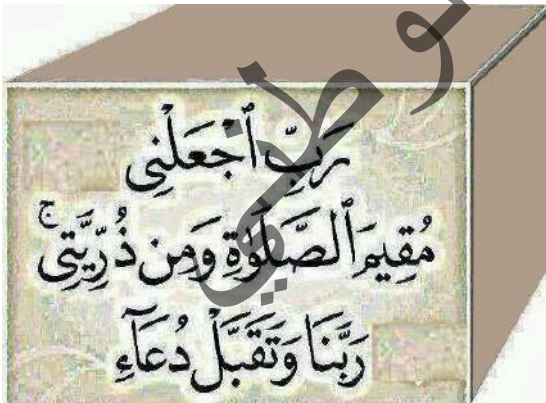 رَبِّ ٱجْعَلْنِى
مُقِيمَ ٱلصَّلَوٰةِ وَمِن ذُرِّيَّتِى ۚ
رَبَّنَا وَتَقَبَّلْ دُعَآءِ